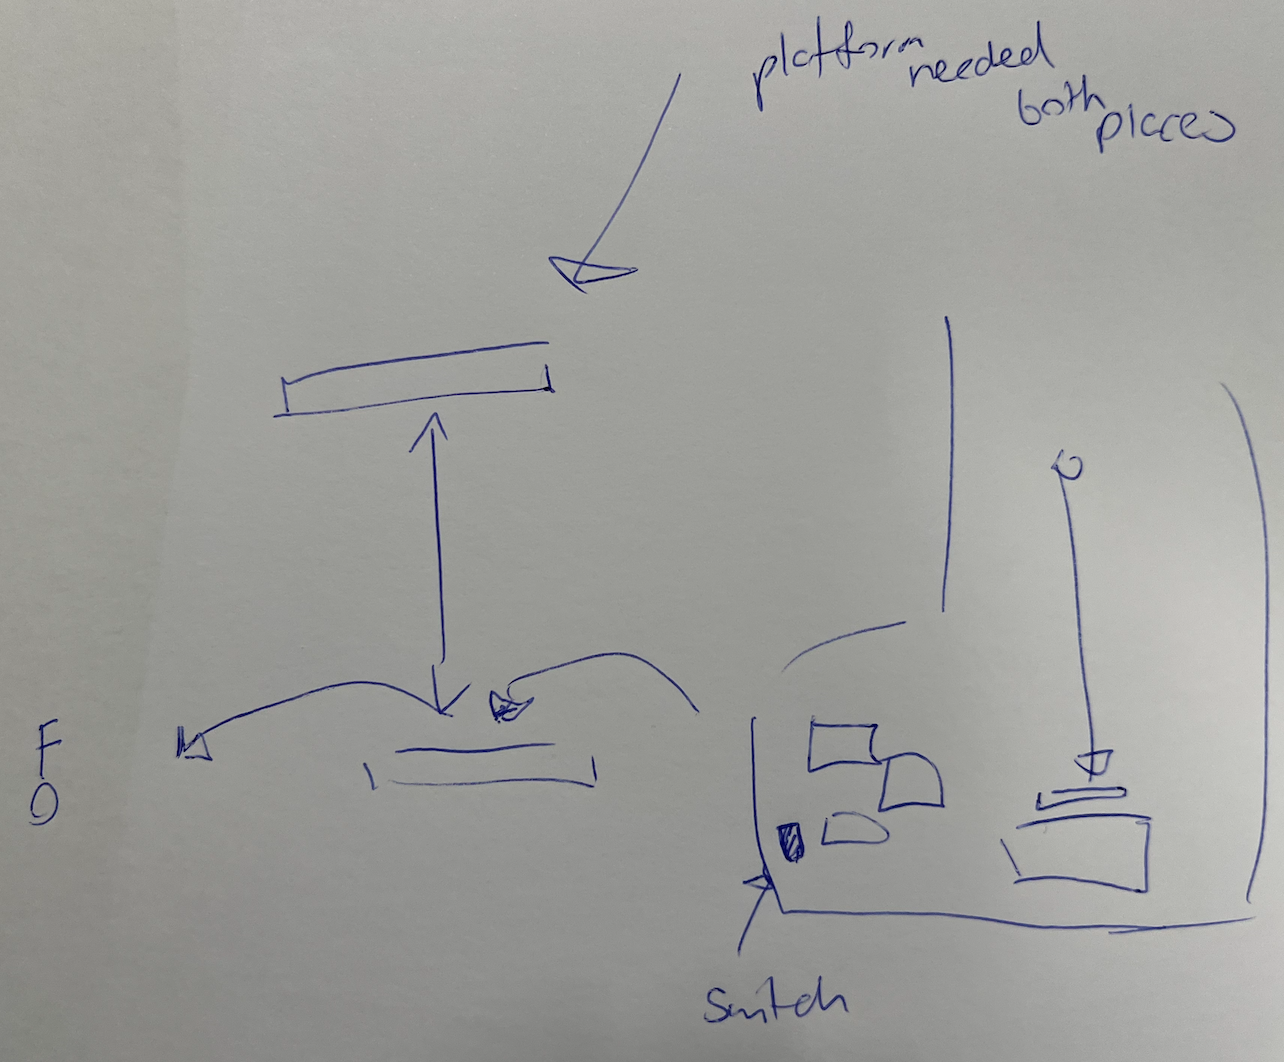 platform needed both places
F
O
Switch